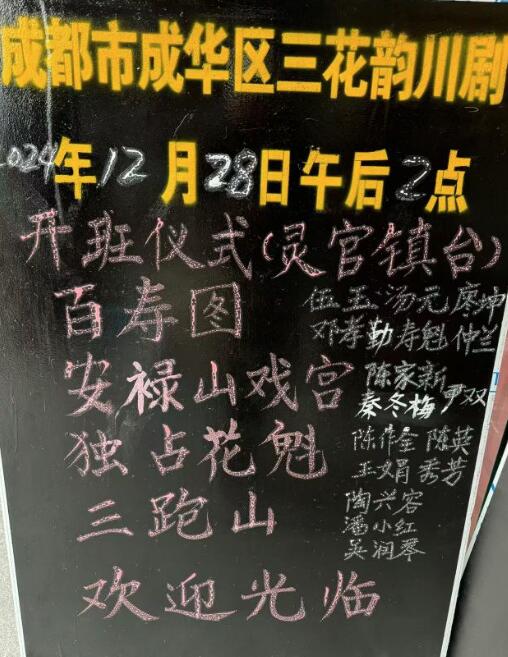 成都市成华区三花韵川剧
2024年12月28日午后2点
开班仪式(灵官镇台)
百寿图 伍玉 汤元 廖坤
邓孝勤 寿魁 仲兰
安禄山戏宫 陈家新
秦冬梅 尹双
独占花魁 陈作全 陈英
王娟 秀芳
三跑山 陶兴容
潘小红
吴润琴
欢迎光临